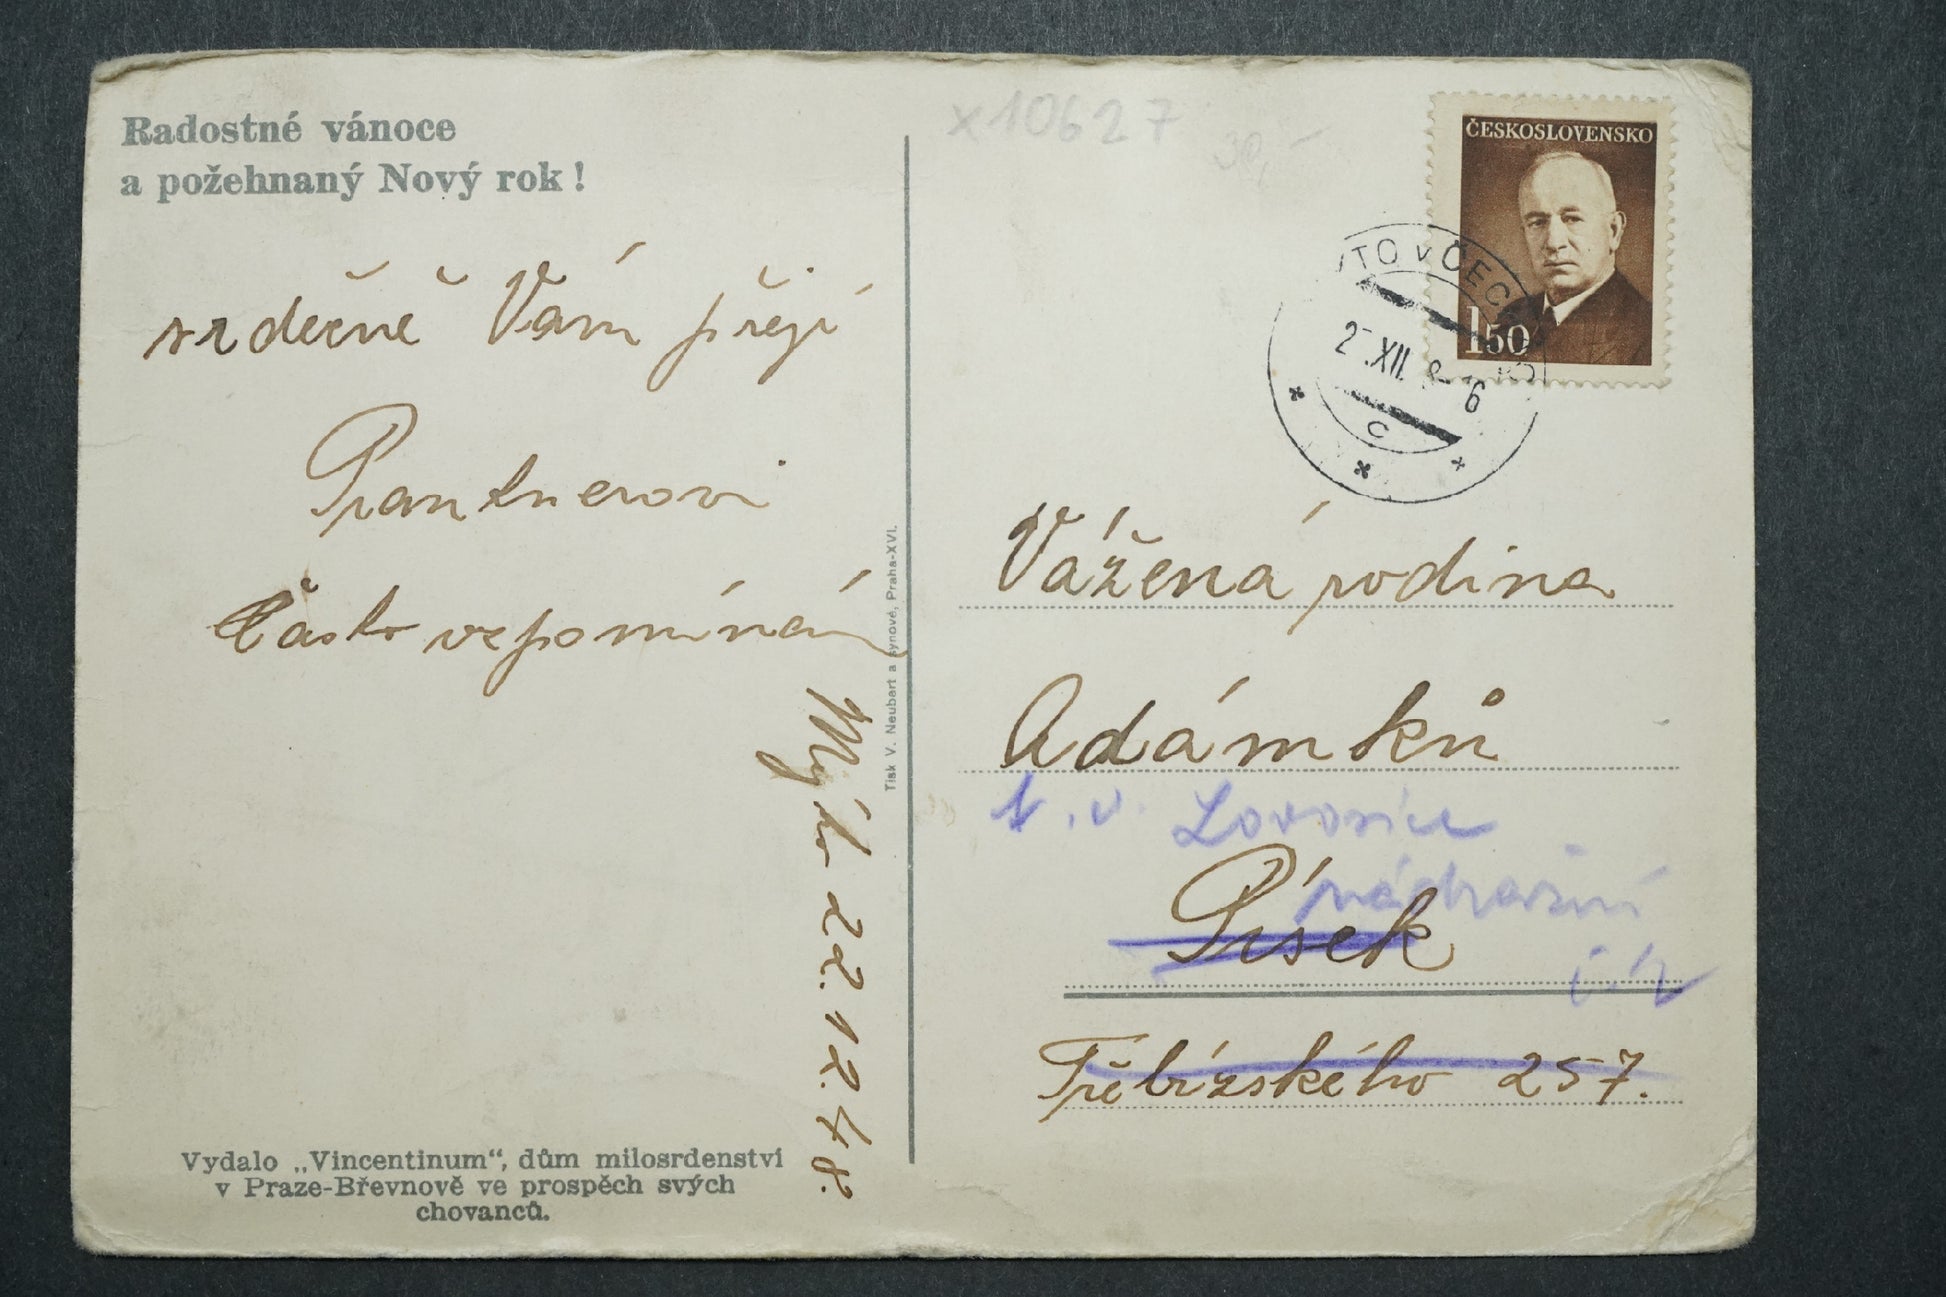 Radostné vánoce
a požehnaný Nový rok!
srdečně Vám přejí
Prantnerovi
Často vzpomínám
Mýto 22.12.48.
Tisk V. Neubert a synové, Praha-XVI.
Vydalo „Vincentinum“, dům milosrdenství
v Praze-Břevnově ve prospěch svých
chovanců.
x10627
30,-
ČESKOSLOVENSKO
1 50
TO v ČECH
2 .XII. 8-16
C
Vážená rodina
Adámků
t.č. Lovosice
nádražní
Písek
Třebízského 257.